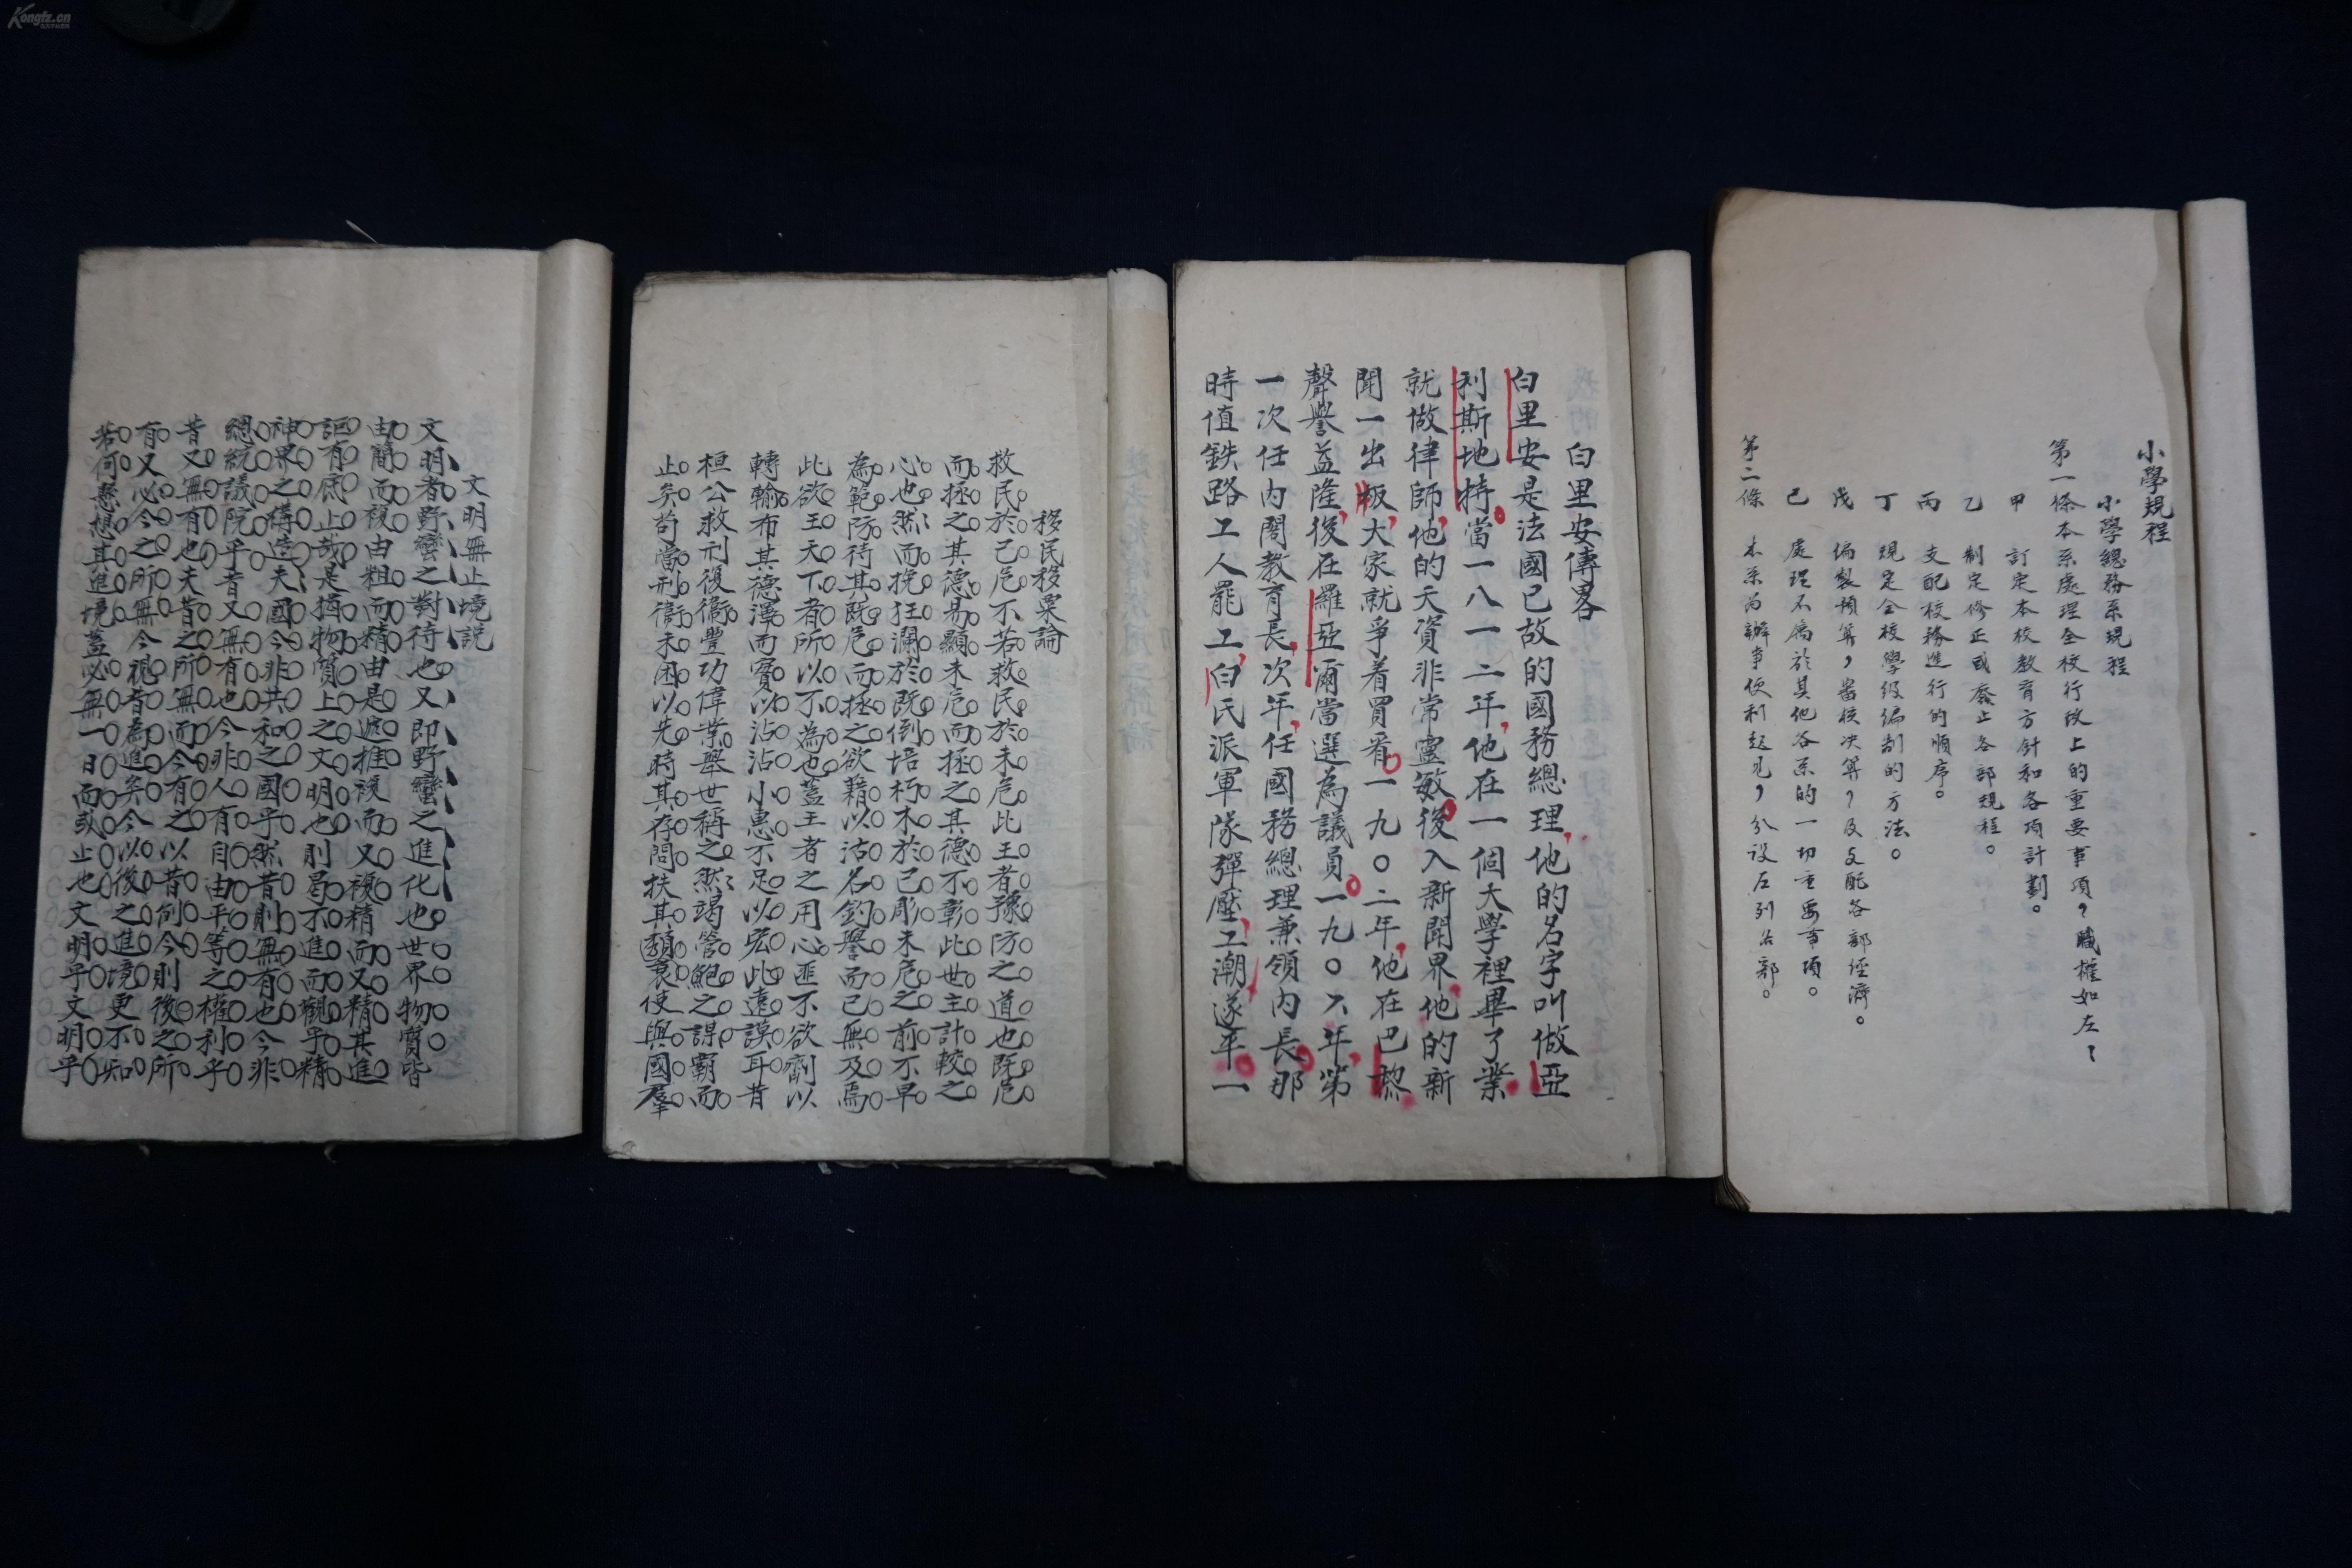 Kongfz.cn
小學規程
小學總務系規程
第一條本系處理全校行政上的重要事項？職權如左：
甲 訂定本校教育方針和各項計劃。
乙 制定修正或廢止各部規程。
丙 支配校務進行的順序。
丁 規定全校學級編制的方法。
戊 編製預算，審核決算？及支配各部經濟。
己 處理不屬於其他各系的一切重要事項。
第二條 本系為辦事便利起見，分设左列各部。
白里安傳畧
白里安是法國已故的國務總理，他的名字叫做亞
利斯地持。當一八一二年，他在一個大學裡畢了業，
就做律師，他的天資非常靈敏。後入新聞界，他的新
聞一出板，大家就爭着買看。一九〇二年，他在巴黎，
聲譽益隆，後在羅亞爾當選為議員。一九〇六年，第
一次任内閣教育長，次年，任國務總理兼領内長。那
時值鉄路工人罷工，白民派軍隊彈壓，工潮遂平。一
移民移粟論
救民於已危不若救民於未危此王者豫防之道也既危
而拯之其德易顯未危而拯之其德不彰此世主計較之
心也然而挽狂瀾於既倒培朽木於已彫未危之前不早
為範防待其既危而拯之欲藉以沽名釣譽而已無及焉
此欲王天下者所以不為也蓋王者之用心匪不欲劑以
轉輸布其德澤而實以沾沾小惠不足以宏此遠謨耳昔
桓公救刑復衞豐功偉業舉世稱之然竭管鮑之謀霸而
止矣苟當刑衞未困以先時其存問扶其顛衰使與國羣
文明無止境說
文明者野蠻之對待也又即野蠻之進化也世界物質皆
由簡而複由粗而精由是遞推複而又複精而又精其進
詎有底止哉是猶物質上之文明也則曷不進而觀乎精
神界之構造夫國今非共和之國乎然昔則無有也今非
總統議院乎昔又無有也今非人有自由平等之權利乎
昔又無有也夫昔之所無而今有之以昔例今則後之所
有又必今之所無今視昔為進矣今以後之進境更不知
若何懸想其進境蓋必無一日而或止也文明乎文明乎